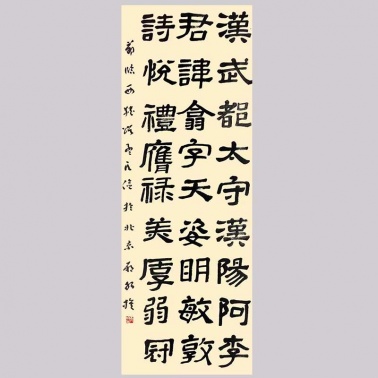 漢武都太守漢陽阿李
君諱翕字天姿明敏敦
詩悅禮膺祿美厚弱冠
節臨西狹頌
於北京